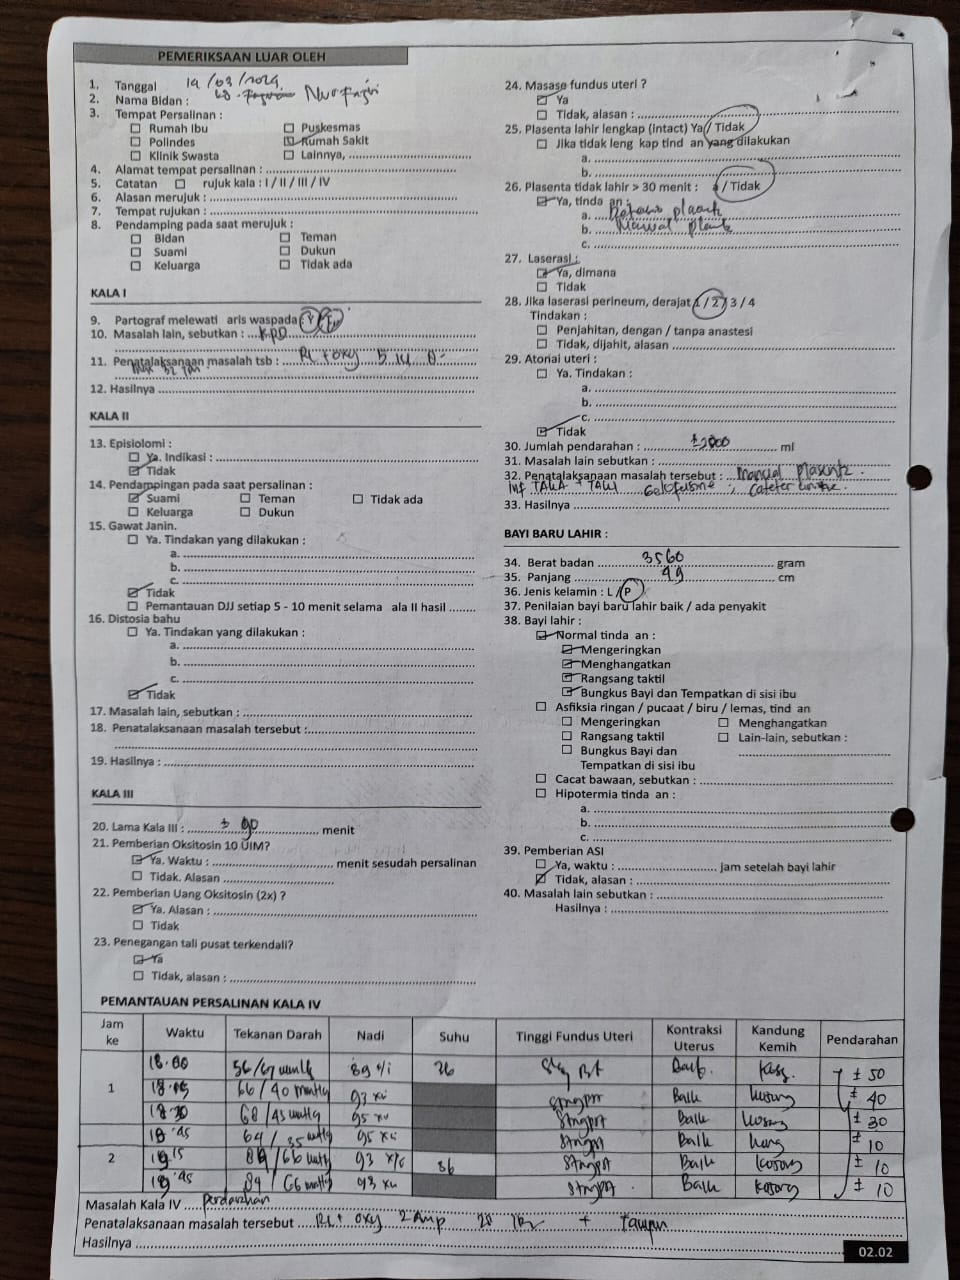 PEMERIKSAAN LUAR OLEH
1. Tanggal 19/03/2024
2. Nama Bidan : Nur
3. Tempat Persalinan :
Rumah Ibu
Puskesmas
Polindes
Rumah Sakit
Klinik Swasta
Lainnya, ........
4. Alamat tempat persalinan : ........
5. Catatan rujuk kala : I / II / III / IV
6. Alasan merujuk : ........
7. Tempat rujukan : ........
8. Pendamping pada saat merujuk :
Bidan
Teman
Suami
Dukun
Keluarga
Tidak ada
KALA I
9. Partograf melewati aris waspada :
10. Masalah lain, sebutkan : KPD
11. Penatalaksanaan masalah tsb : RL + oxy 5 IU
12. Hasilnya ........
KALA II
13. Episiolomi :
Ya. Indikasi : ........
Tidak
14. Pendampingan pada saat persalinan :
Suami
Teman
Tidak ada
Keluarga
Dukun
15. Gawat Janin.
Ya. Tindakan yang dilakukan :
a. ........
b. ........
c. ........
Tidak
Pemantauan DJJ setiap 5 - 10 menit selama ala II hasil ........
16. Distosia bahu
Ya. Tindakan yang dilakukan :
a. ........
b. ........
c. ........
Tidak
17. Masalah lain, sebutkan : ........
18. Penatalaksanaan masalah tersebut : ........
19. Hasilnya : ........
KALA III
20. Lama Kala III : ± 90 menit
21. Pemberian Oksitosin 10 UIM?
Ya. Waktu : ........ menit sesudah persalinan
Tidak. Alasan ........
22. Pemberian Uang Oksitosin (2x) ?
Ya. Alasan : ........
Tidak
23. Penegangan tali pusat terkendali?
Ya
Tidak, alasan : ........
24. Masase fundus uteri ?
Ya
Tidak, alasan : ........
25. Plasenta lahir lengkap (intact) Ya / Tidak
Jika tidak leng kap tind an yang dilakukan
a. ........
b. ........
26. Plasenta tidak lahir > 30 menit : / Tidak
Ya, tinda an :
a. Retensio plasenta
b. Manual plasenta
c. ........
27. Laserasi :
Ya, dimana
Tidak
28. Jika laserasi perineum, derajat 1 / 2 / 3 / 4
Tindakan :
Penjahitan, dengan / tanpa anastesi
Tidak, dijahit, alasan ........
29. Atonai uteri :
Ya. Tindakan :
a. ........
b. ........
c. ........
Tidak
30. Jumlah pendarahan : ml
31. Masalah lain sebutkan : ........
32. Penatalaksanaan masalah tersebut : manual plasenta
Gelofusine
33. Hasilnya ........
BAYI BARU LAHIR :
34. Berat badan 3560 gram
35. Panjang 49 cm
36. Jenis kelamin : L / P
37. Penilaian bayi baru lahir baik / ada penyakit
38. Bayi lahir :
Normal tinda an :
Mengeringkan
Menghangatkan
Rangsang taktil
Bungkus Bayi dan Tempatkan di sisi ibu
Asfiksia ringan / pucaat / biru / lemas, tind an
Mengeringkan
Menghangatkan
Rangsang taktil
Lain-lain, sebutkan :
Bungkus Bayi dan
Tempatkan di sisi ibu
Cacat bawaan, sebutkan : ........
Hipotermia tinda an :
a. ........
b. ........
c. ........
39. Pemberian ASI
Ya, waktu : ........ jam setelah bayi lahir
Tidak, alasan : ........
40. Masalah lain sebutkan : ........
Hasilnya : ........
PEMANTAUAN PERSALINAN KALA IV
Jam ke Waktu Tekanan Darah Nadi Suhu Tinggi Fundus Uteri Kontraksi Uterus Kandung Kemih Pendarahan
1 18.00 56/67 mmHg 89 x/i 36 Baik ± 50
18.15 66/40 mmHg 93 x/i Baik kosong ± 40
18.30 68/43 mmHg 95 x/i Baik kosong ± 30
18.45 64/35 mmHg 95 x/i Baik ± 10
2 19.15 93 x/i 36 Baik kosong ± 10
19.45 84/66 mmHg 93 x/i Baik kosong ± 10
Masalah Kala IV Perdarahan
Penatalaksanaan masalah tersebut RL + oxy 2 Amp + Tampon
Hasilnya ........
02.02